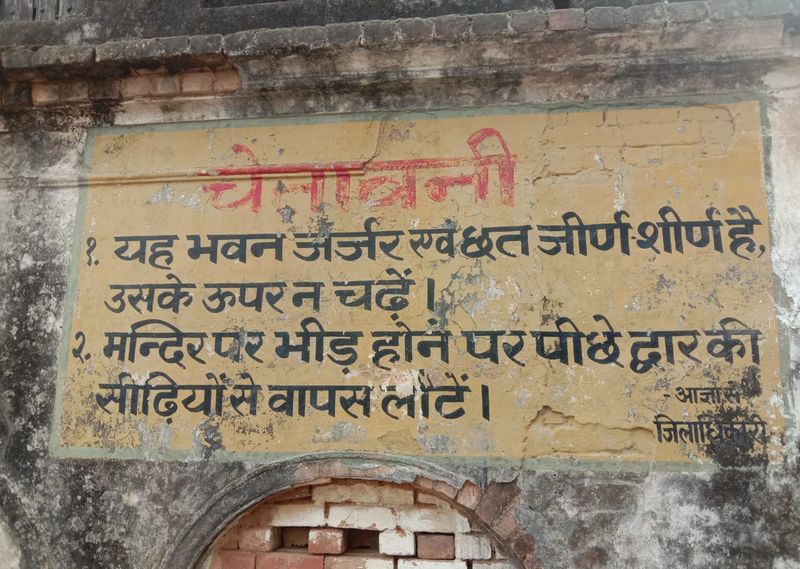 चेतावनी
१. यह भवन जर्जर एवं छत जीर्ण-शीर्ण है,
उसके ऊपर न चढ़ें।
२. मन्दिर पर भीड़ होने पर पीछे द्वार की
सीढ़ियों से वापस लौटें।
- आज्ञा से
जिलाधिकारी